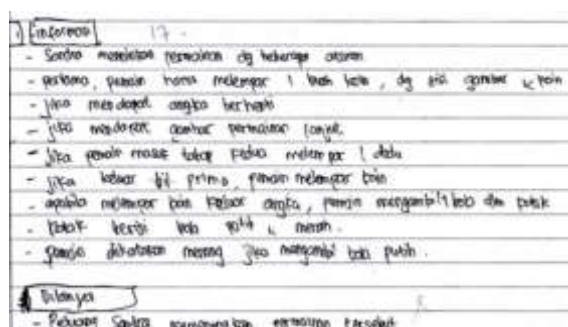 Informasi 17.
- Sandra memainkan permainan dg beberapa aturan
- pertama, pemain harus melempar 1 buah koin, dg sisi gambar & poin
- jika mendapat angka berhenti
- jika mendapat gambar permainan lanjut.
- jika pemain masuk tahap kedua melempar 1 dadu
- jika keluar bil prima, pemain melempar koin
- apabila melempar koin keluar angka, pemain mengambil 1 bola dlm kotak
- kotak berisi bola putih & merah.
- pemain dikatakan menang jika mengambil bola putih.
Ditanya
- Peluang Sandra memenangkan permainan tersebut